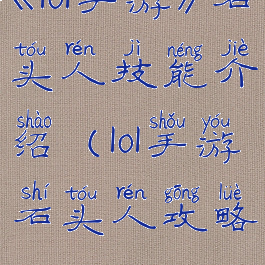 《101手游》石
tóu rén jì néng jiè
头人技能介
shào shǒu yóu
绍（101手游
shí tóu rén gōng lüè
石头人攻略